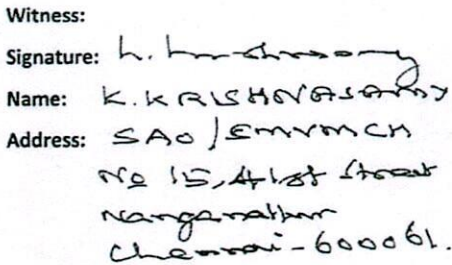 Witness:
Signature:
Name: K. KRISHNASAMY
Address: SAO / EMVMCH
No 15, 41st Street
Nanganallur
Chennai - 600061.